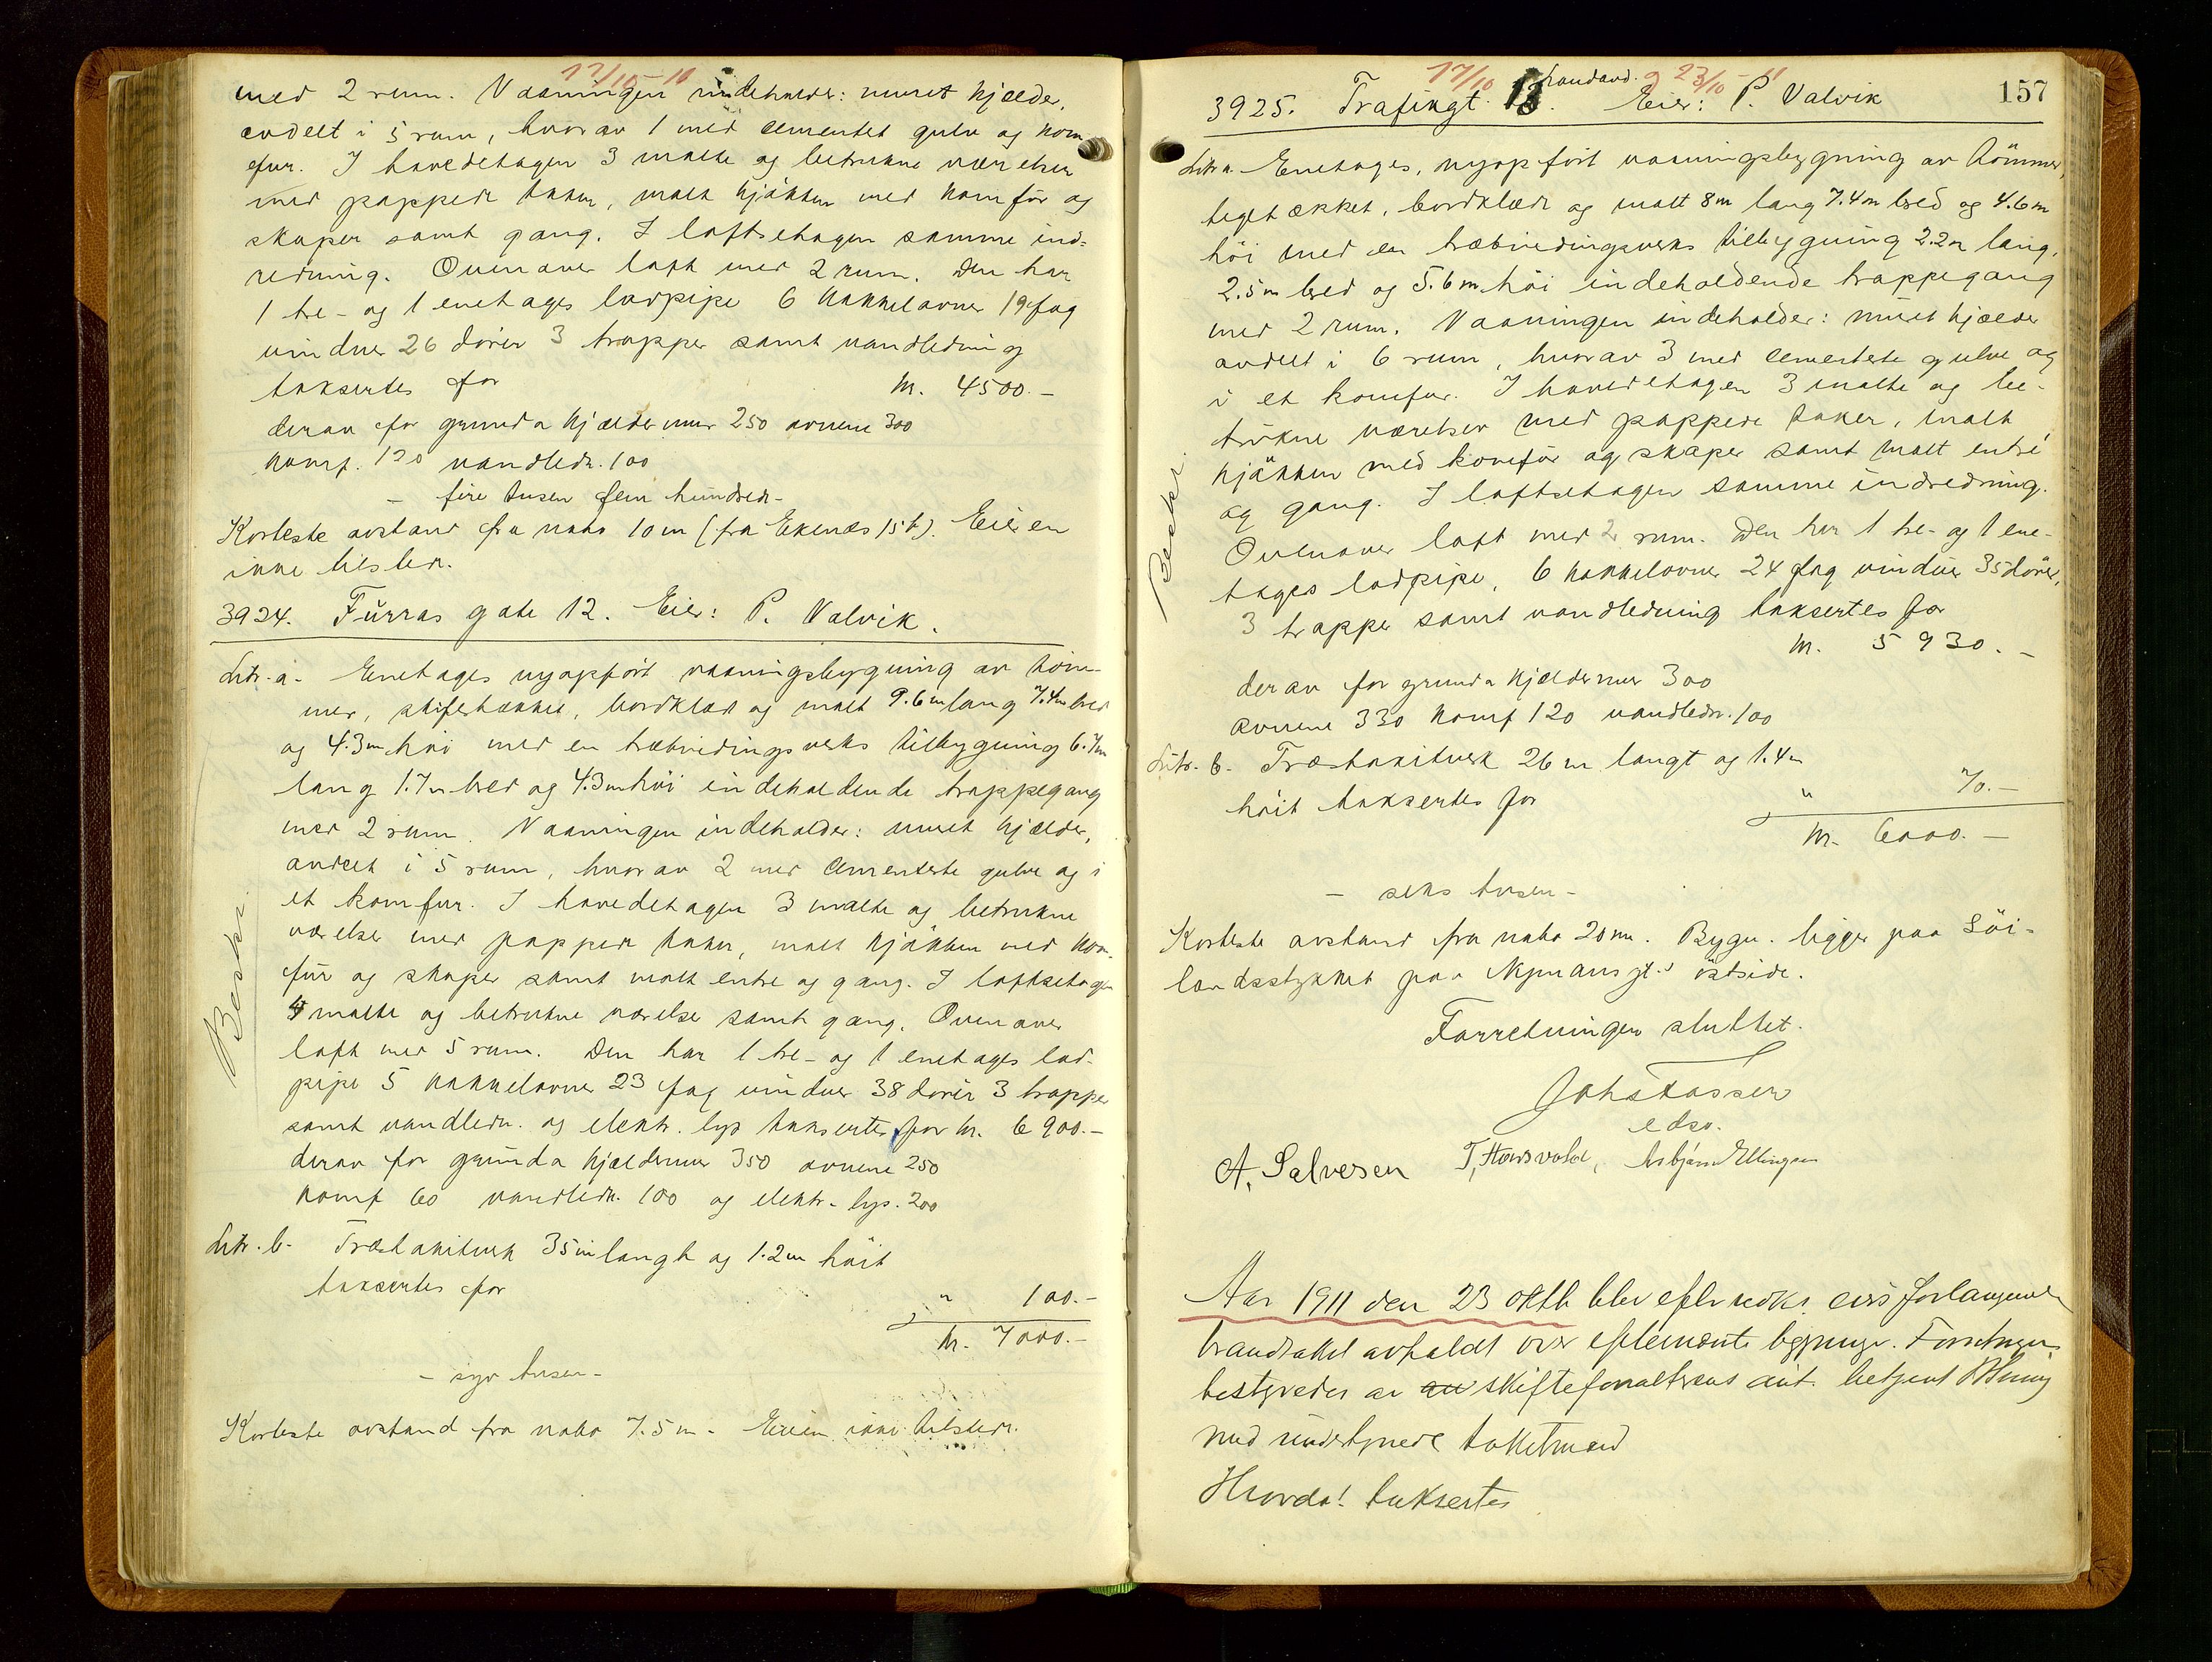 17/10 - 11
med 2 rum. Vaaningen indeholder: muret kjælder,
avdelt i 5 rum, hvorav 1 med cementet gulv og kom-
fur. I hovedetagen 3 malte og betrukne værelser
med pappede taker, malt kjøkken med komfür og
skaper samt gang. I loftsetagen samme ind-
redning. Ovenover loft med 2 rum. Den har
1 tre- og 1 enetages lodpipe 6 kakkelovner 19 fag
vinduer 26 dører 3 trapper samt vandledning
taksertes for kr. 4500.-
derav for grund a kjældermur 250 ovnene 300
komf. 120 vandledn. 100
- fire tusen fem hundrede -
Korteste avstand fra nabo 10 m (fra Ekenæs 15 b). Eieren
ikke tilstede.
3924. Fürras gate 12. Eier: P. Valvik.
Litr. a. Enetages nyopført vaaningsbygning av tøm-
mer, skifertækket, bordklædt og malt 9.6 m lang 7.4 m bred
og 4.3 m høi med en træbindingsverks tilbygning 6.7 m
lang 1.7 m bred og 4.3 m høi indeholdende trappegang
med 2 rum. Vaaningen indeholder: muret kjælder,
avdelt i 5 rum, hvorav 2 med cementerte gulve og i
et komfur. I hovedetagen 3 malte og betrukne
værelser med pappede taker, malt kjøkken med kom-
für og skaper samt malt entre og gang. I loftsetagen
4 malte og betrukne værelse samt gang. Ovenover
loft med 5 rum. Den har 1 tre- og 1 enetages lod-
pipe 5 kakkelovner 23 fag vinduer 38 dører 3 trapper
samt vandledn. og elektr. lys taksertes for kr. 6900.-
derav for grund a kjældermur 350 ovnene 250
komf 60 vandledn. 100 og elektr. lys. 200
Litr. b. Træstakitverk 35 m langt og 1.2 m høit
taksertes for " 100.-
kr. 7000.-
- syv tusen -
Korteste avstand fra nabo 7.5 m. Eieren ikke tilstede.
Beskr.
157
17/10 g 23/10 - 11
3925. Trafikgt. 13. Eier: P. Valvik
Litr a. Enetages, nyopført vaaningsbygning av tömmer,
tegltækket, bordklædt og malt 8 m lang 7.4 m bred og 4.6 m
höi med en træbindingsverks tilbygning 2.2 m lang,
2.5 m bred og 5.6 m høi indeholdende trappegang
med 2 rum. Vaaningen indeholder: muret kjælder
avdelt i 6 rum, hvorav 3 med cementerte gulve og
i et komfur. I hovedetagen 3 malte og be-
trukne værelser med pappede taker, malt
kjøkken med komfür og skaper samt malt entré
og gang. I loftsetagen samme indredning.
Ovenover loft med 2 rum. Den har 1 tre- og 1 ene-
tages lodpipe, 6 kakkelovner 24 fag vinduer 35 dører,
3 trapper samt vandledning taksertes for
kr. 5930.-
derav for grund a kjældermur 300
ovnene 330 komf 120 vandledn. 100
Litr. b. Træstakitverk 26 m langt og 1.4 m
høit taksertes for " 70.-
kr. 6000.-
- seks tusen -
Korteste avstand fra nabo 20 m. Bygn. ligger paa Söi-
landsstykket paa Nymansgt.s østside.
Beskr.
Forretningen sluttet.
Johs Fasser
edsv.
A. Salvesen T. Asbjørn Ellingsen
Aar 1911 den 23 oktb blev efter eiers forlangende
brandtakst avholdt over eftermævnte bygninger. Forretningen
bestyredes av au skifteforvalterens aut. betjent
med undertegnede takstmænd
Hvorda! taksertes